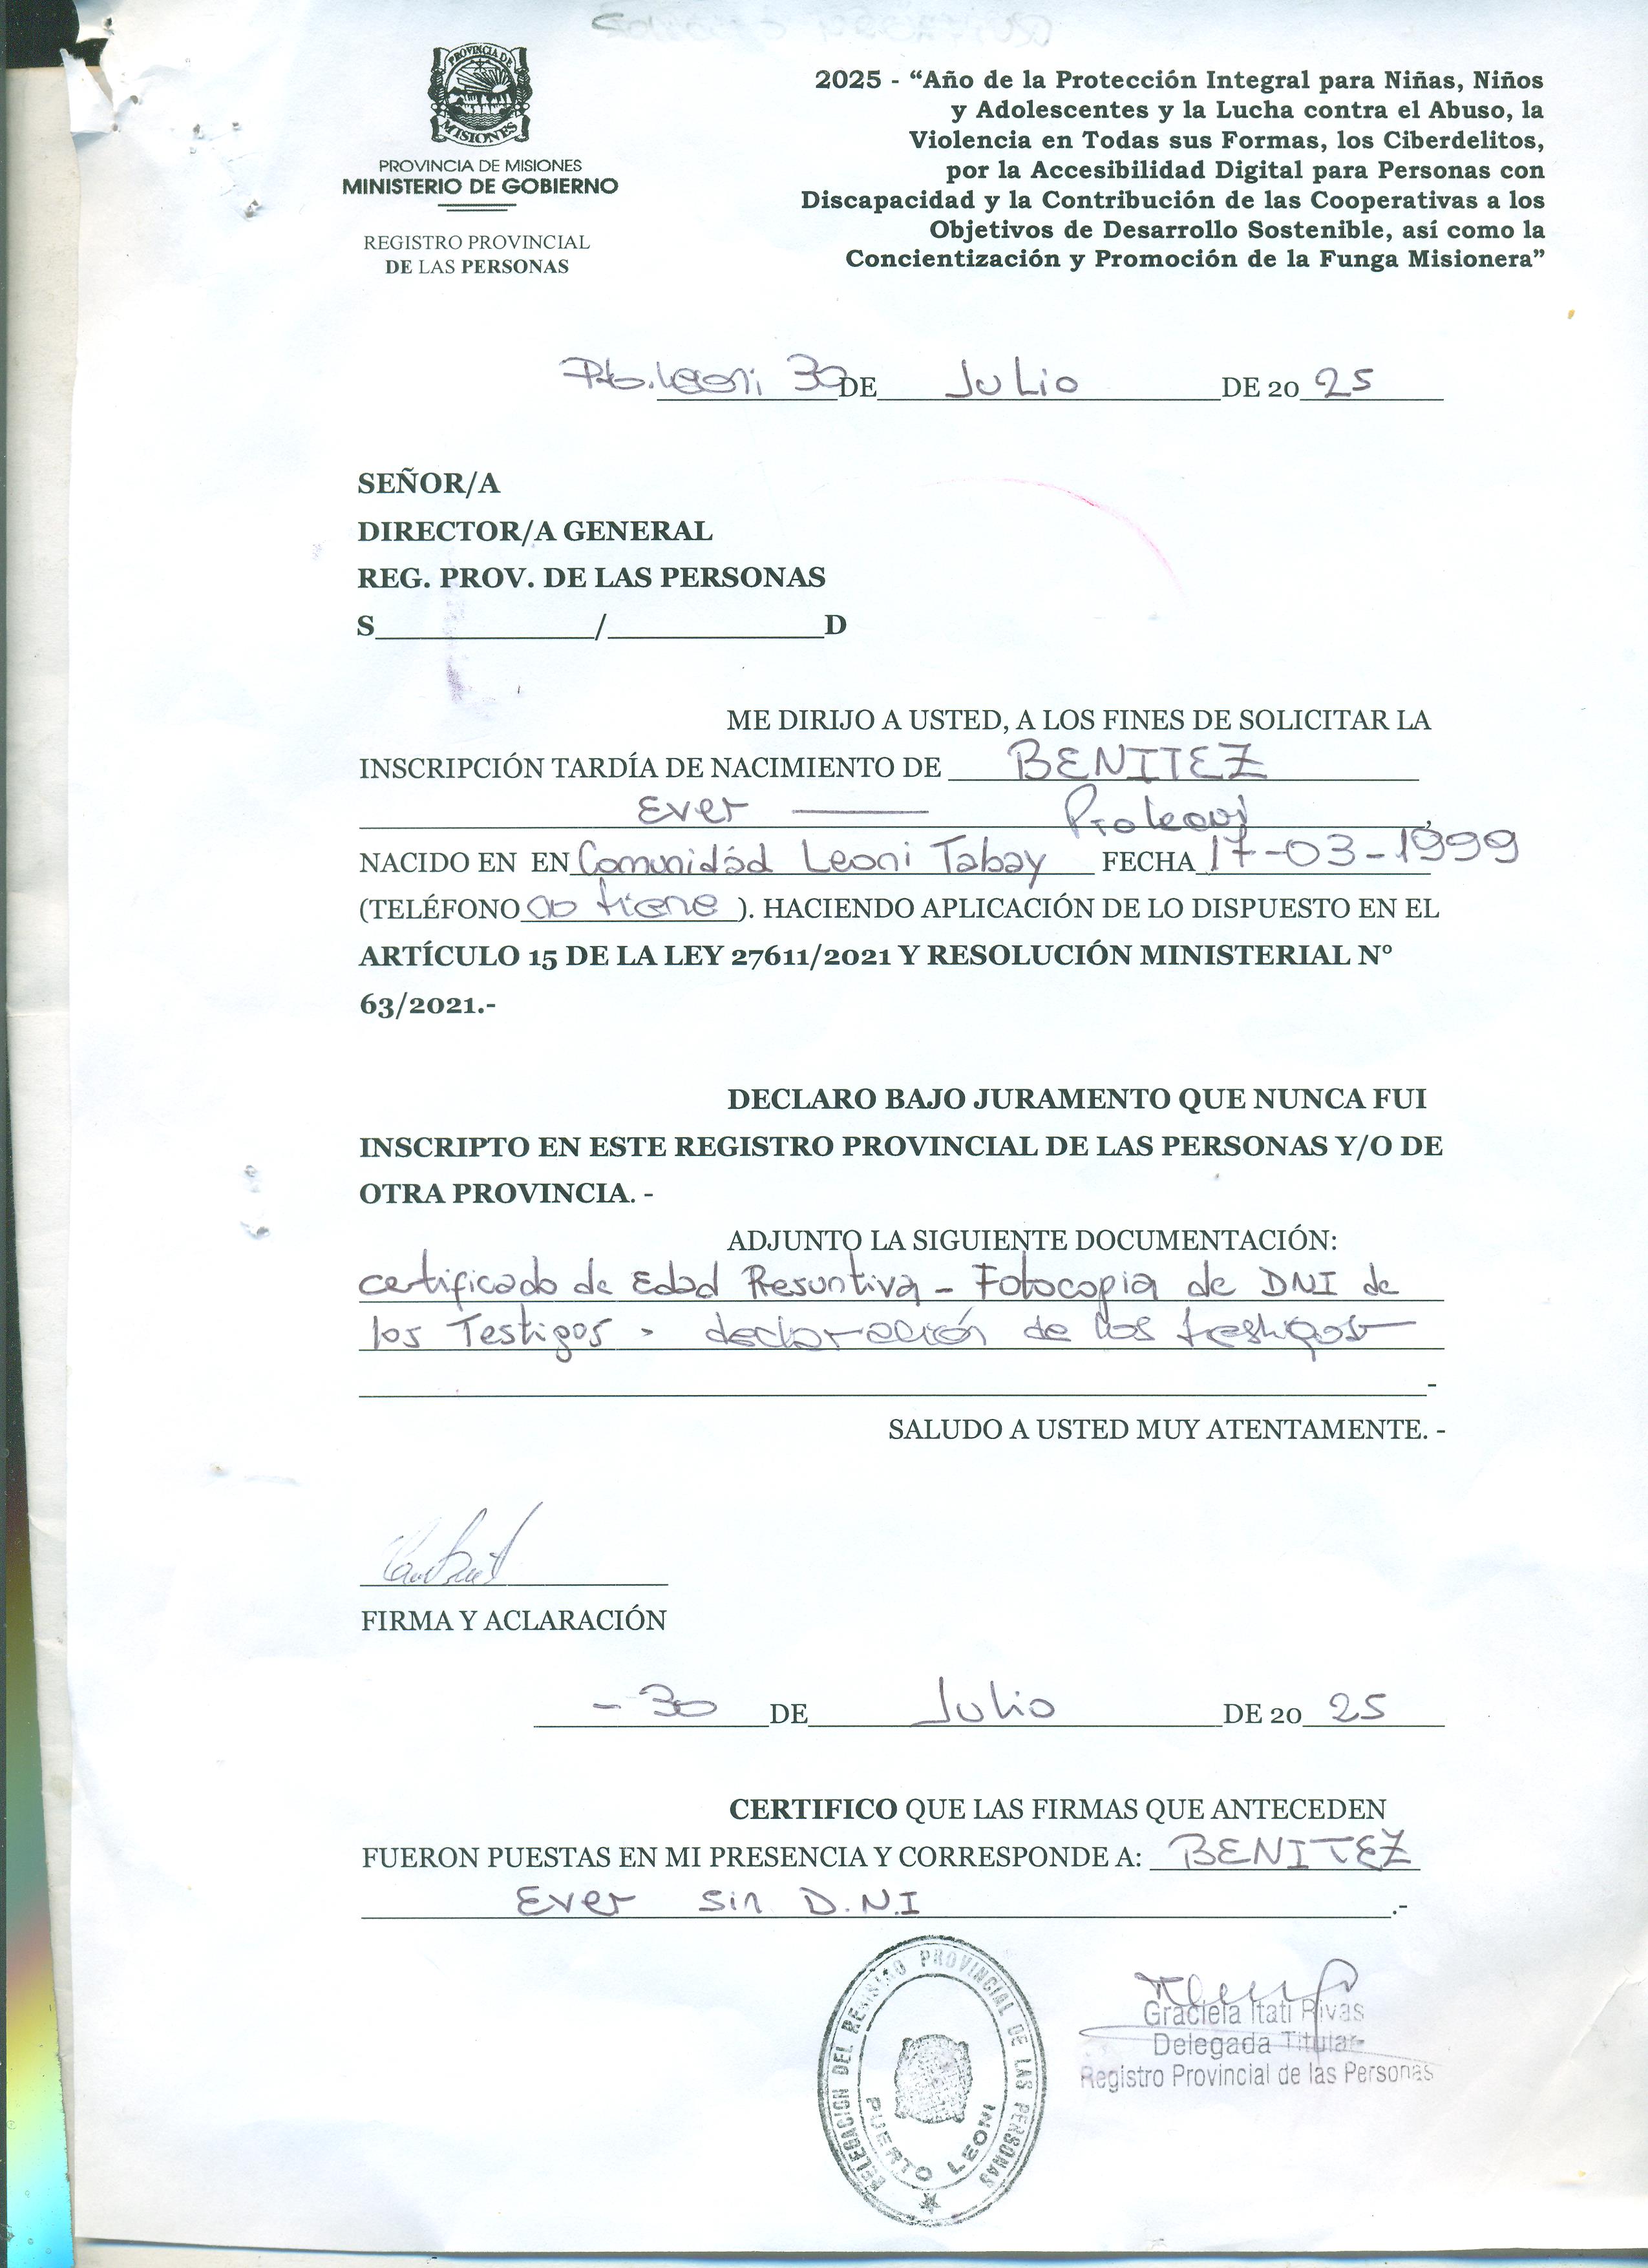 PROVINCIA DE
MISIONES
PROVINCIA DE MISIONES
MINISTERIO DE GOBIERNO
REGISTRO PROVINCIAL
DE LAS PERSONAS
2025 - “Año de la Protección Integral para Niñas, Niños
y Adolescentes y la Lucha contra el Abuso, la
Violencia en Todas sus Formas, los Ciberdelitos,
por la Accesibilidad Digital para Personas con
Discapacidad y la Contribución de las Cooperativas a los
Objetivos de Desarrollo Sostenible, así como la
Concientización y Promoción de la Funga Misionera”
Pto. Leoni 30 DE Julio DE 20 25
SEÑOR/A
DIRECTOR/A GENERAL
REG. PROV. DE LAS PERSONAS
S____________/____________D
ME DIRIJO A USTED, A LOS FINES DE SOLICITAR LA
INSCRIPCIÓN TARDÍA DE NACIMIENTO DE BENITEZ
Ever —— Pto Leoni,
NACIDO EN EN Comunidád Leoni Tabay FECHA 17-03-1999
(TELÉFONO no tiene ). HACIENDO APLICACIÓN DE LO DISPUESTO EN EL
ARTÍCULO 15 DE LA LEY 27611/2021 Y RESOLUCIÓN MINISTERIAL Nº
63/2021.-
DECLARO BAJO JURAMENTO QUE NUNCA FUI
INSCRIPTO EN ESTE REGISTRO PROVINCIAL DE LAS PERSONAS Y/O DE
OTRA PROVINCIA. -
ADJUNTO LA SIGUIENTE DOCUMENTACIÓN:
certificado de Edad Resuntiva - Fotocopia de DNI de
los Testigos - declaración de los testigos
-
SALUDO A USTED MUY ATENTAMENTE. -
FIRMA Y ACLARACIÓN
- 30 DE Julio DE 20 25
CERTIFICO QUE LAS FIRMAS QUE ANTECEDEN
FUERON PUESTAS EN MI PRESENCIA Y CORRESPONDE A: BENITEZ
Ever sin D.N.I .-
DELEGACION DEL REGISTRO PROVINCIAL DE LAS PERSONAS
PUERTO LEONI
Graciela Itati Rivas
Delegada Titular
Registro Provincial de las Personas